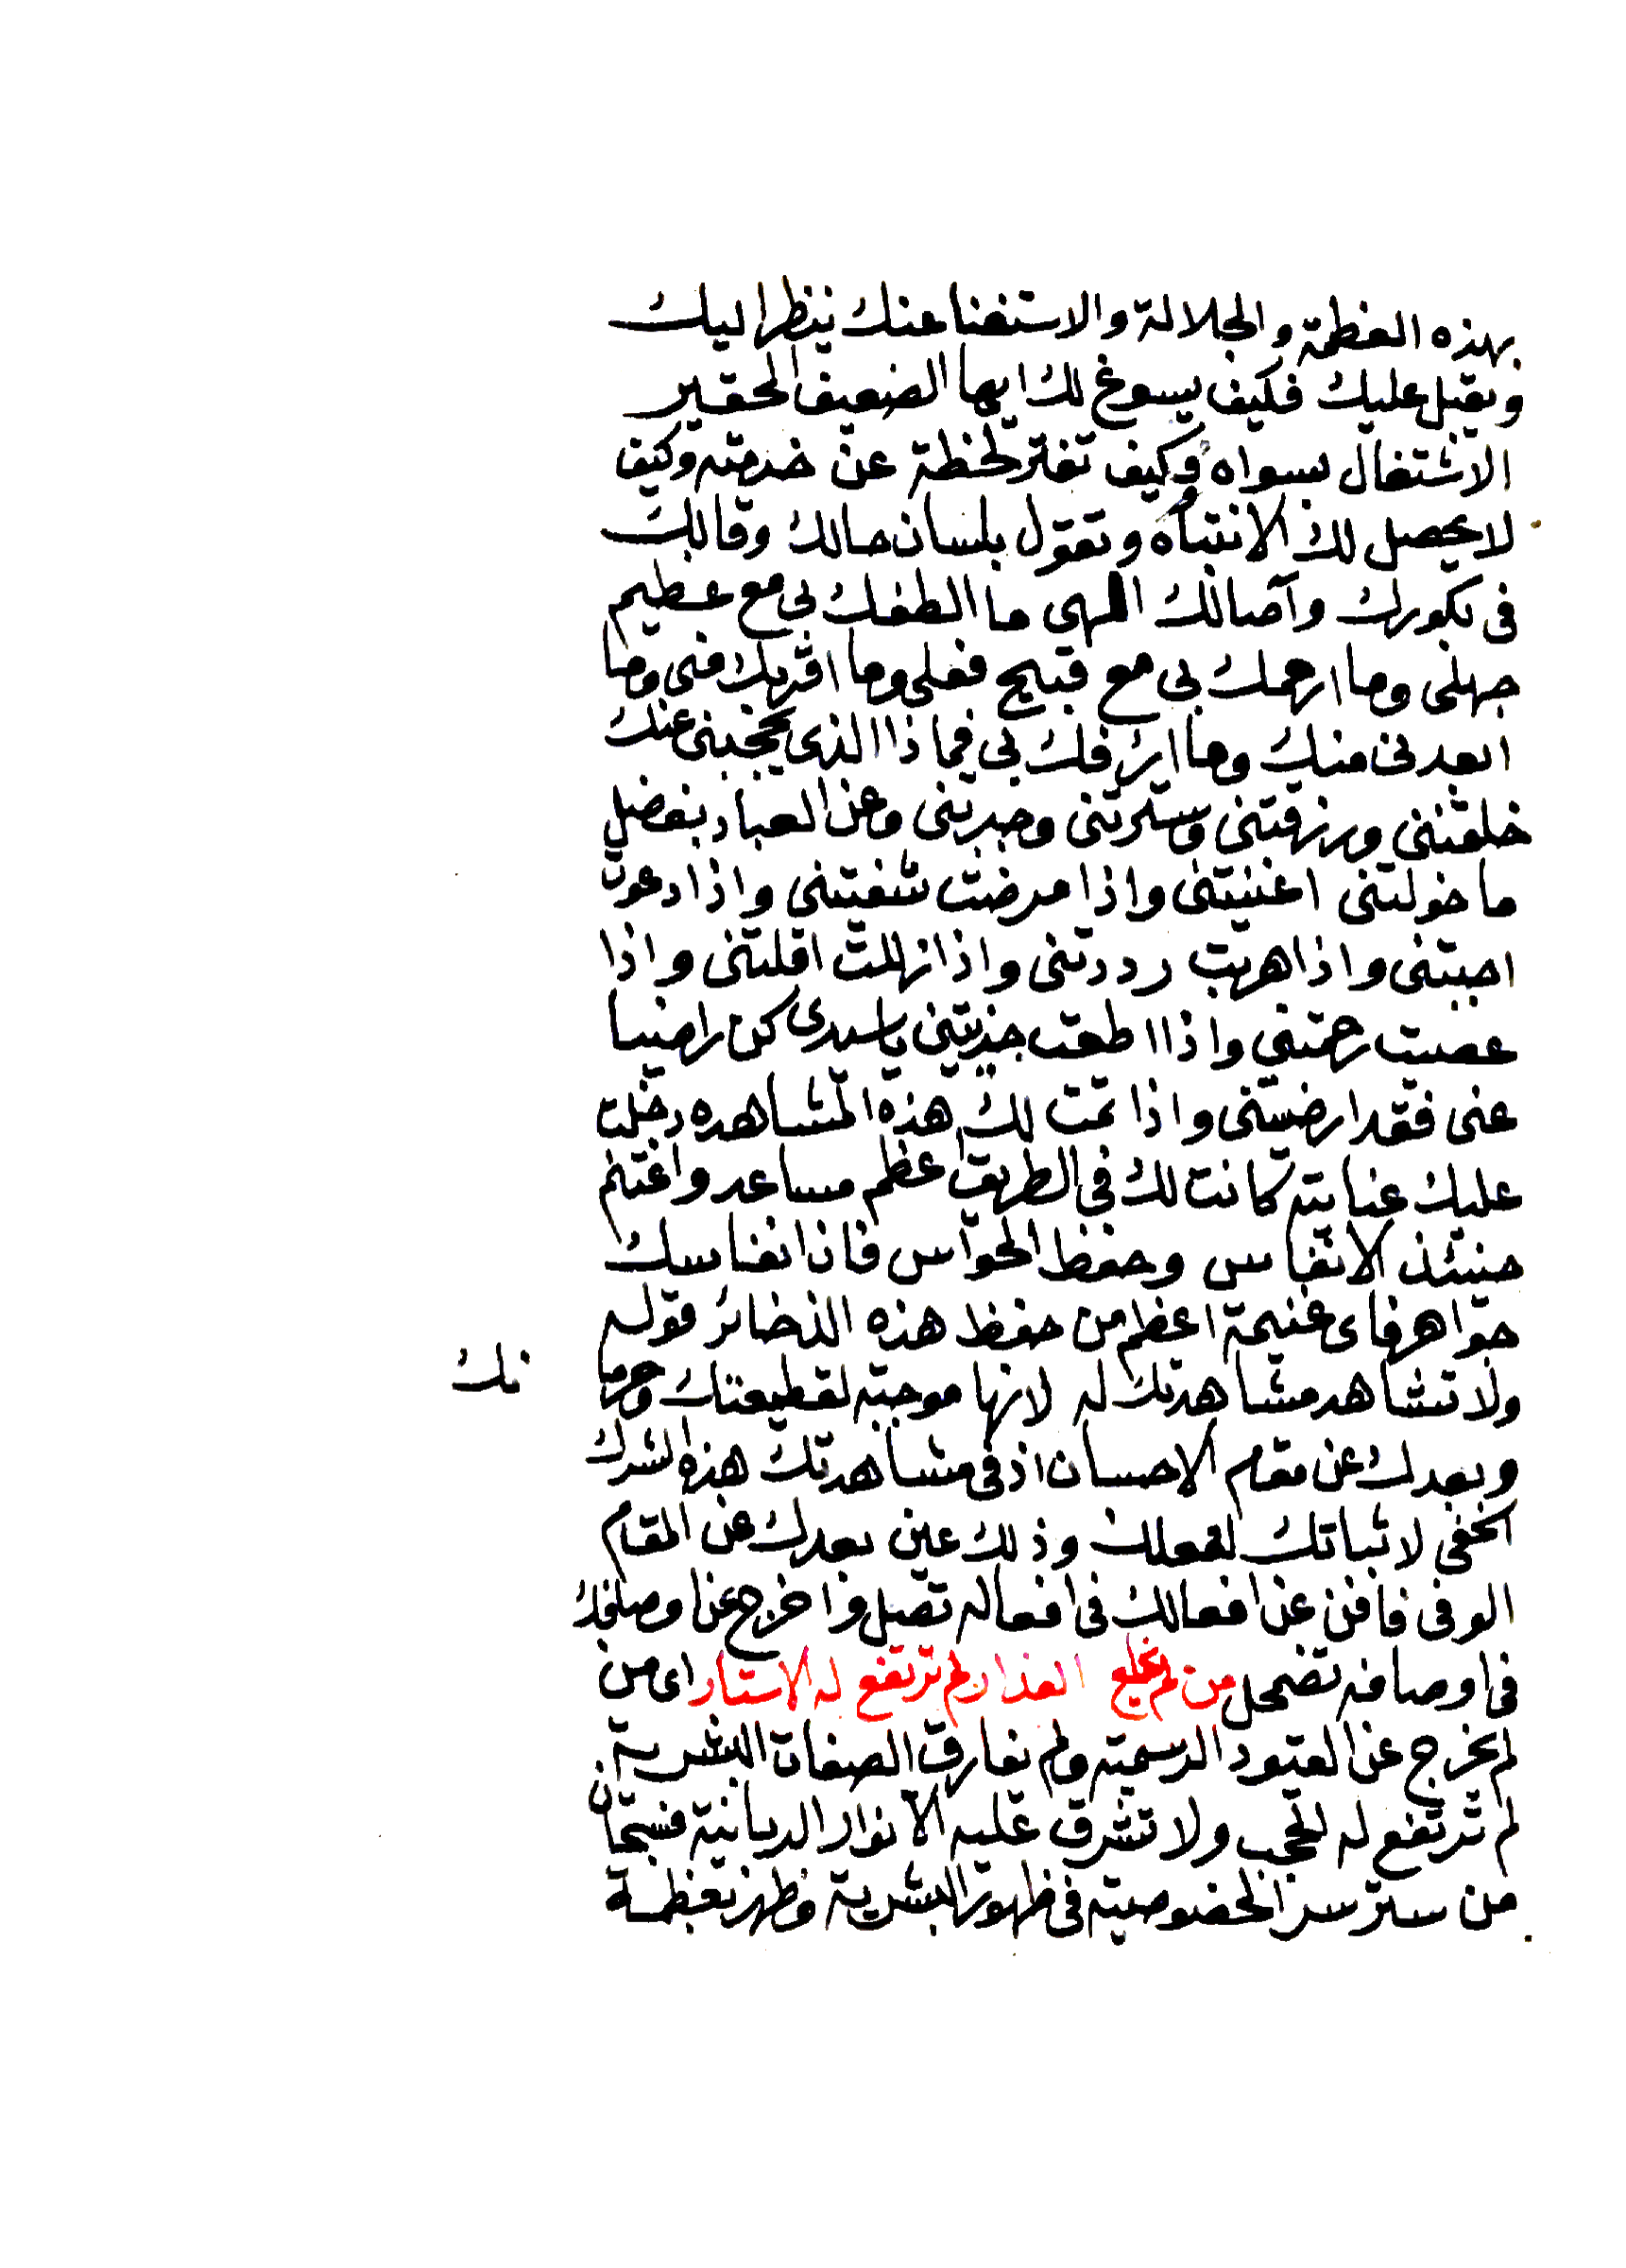 بهذه العظمة والجلالة والاستغنا عنك ينظر اليك
ويقبل عليك فكيف يسوغ لك ايها الضعيف الحقير
الاشتغال بسواه وكيف تفتر لحظة عن خدمته وكيف
لا يحصل لك الانتباه وتقول بلسان حالك وقالك
فى بكورك وآصالك الهى ما الطفك بى مع عظيم
جهلى وما ارحمك بى مع قبيح فعلى وما اقربك منى وما
ابعدنى منك وما ارافك بى فماذا الذى يحجبنى عنك
خلقتنى ورزقتنى وسترتنى وجبرتنى وعن العباد بفضل
ما خولتنى اغنيتنى واذا مرضت شفيتنى واذا دعوت
اجبتنى واذا هربت رددتنى واذا زللت اقلتنى واذا
عصيت رحمتنى واذا اطعت جذبتنى ياسيدى كن راضيا
عنى فقد ارضيتنى واذا تمت لك هذه المشاهده دخلت
عليك عنايته كانت لك فى الطريق اعظم مساعد واغتنم
حينئذ الانفاس وحفظ الحواس فان انفاسك
جواهر فاى غنيمة اعظم من حفظ هذه الذخائر قوله
ولا تشاهد مشاهدتك له لانها موجبة لقطيعتك وحرما
نك
وبعدك عن مقام الاحسان اذ فى مشاهدتك هذه الشرك
الخفى لاثباتك لفعلك وذلك عين بعدك عن المقام
الوفى فافن عن افعالك فى افعاله تصل واخرج عن اوصافك
فى اوصافه تضمحل من لم يخلع العذار لم ترتفع له الاستار اى من
لم يخرج عن القيود الرسمية ولم يفارق الصفات البشرية
لم ترتفع له الحجب ولا تشرق عليه الانوار الربانية فسبحان
من ستر سر الخصوصية فى ظهور البشرية وظهر بعظمة